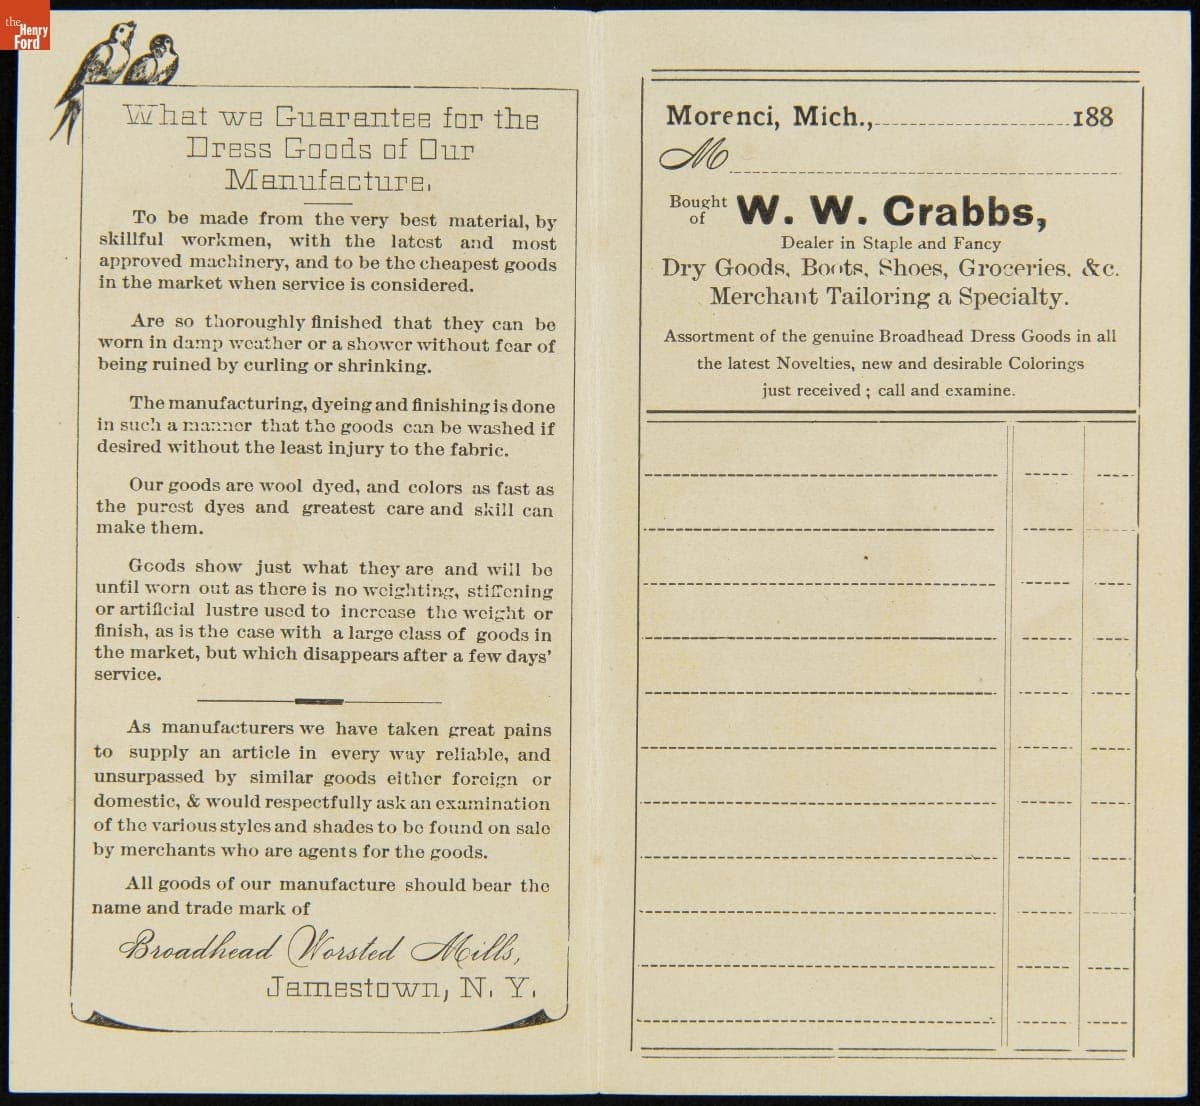 the
Henry
Ford
What we Guarantee for the
Dress Goods of Our
Manufacture.
To be made from the very best material, by
skillful workmen, with the latest and most
approved machinery, and to be the cheapest goods
in the market when service is considered.
Are so thoroughly finished that they can be
worn in damp weather or a shower without fear of
being ruined by curling or shrinking.
The manufacturing, dyeing and finishing is done
in such a manner that the goods can be washed if
desired without the least injury to the fabric.
Our goods are wool dyed, and colors as fast as
the purest dyes and greatest care and skill can
make them.
Goods show just what they are and will be
until worn out as there is no weighting, stiffening
or artificial lustre used to increase the weight or
finish, as is the case with a large class of goods in
the market, but which disappears after a few days'
service.
As manufacturers we have taken great pains
to supply an article in every way reliable, and
unsurpassed by similar goods either foreign or
domestic, & would respectfully ask an examination
of the various styles and shades to be found on sale
by merchants who are agents for the goods.
All goods of our manufacture should bear the
name and trade mark of
Broadhead Worsted Mills,
Jamestown, N. Y.
Morenci, Mich., 188
M
Bought of W. W. Crabbs,
Dealer in Staple and Fancy
Dry Goods, Boots, Shoes, Groceries, &c.
Merchant Tailoring a Specialty.
Assortment of the genuine Broadhead Dress Goods in all
the latest Novelties, new and desirable Colorings
just received; call and examine.